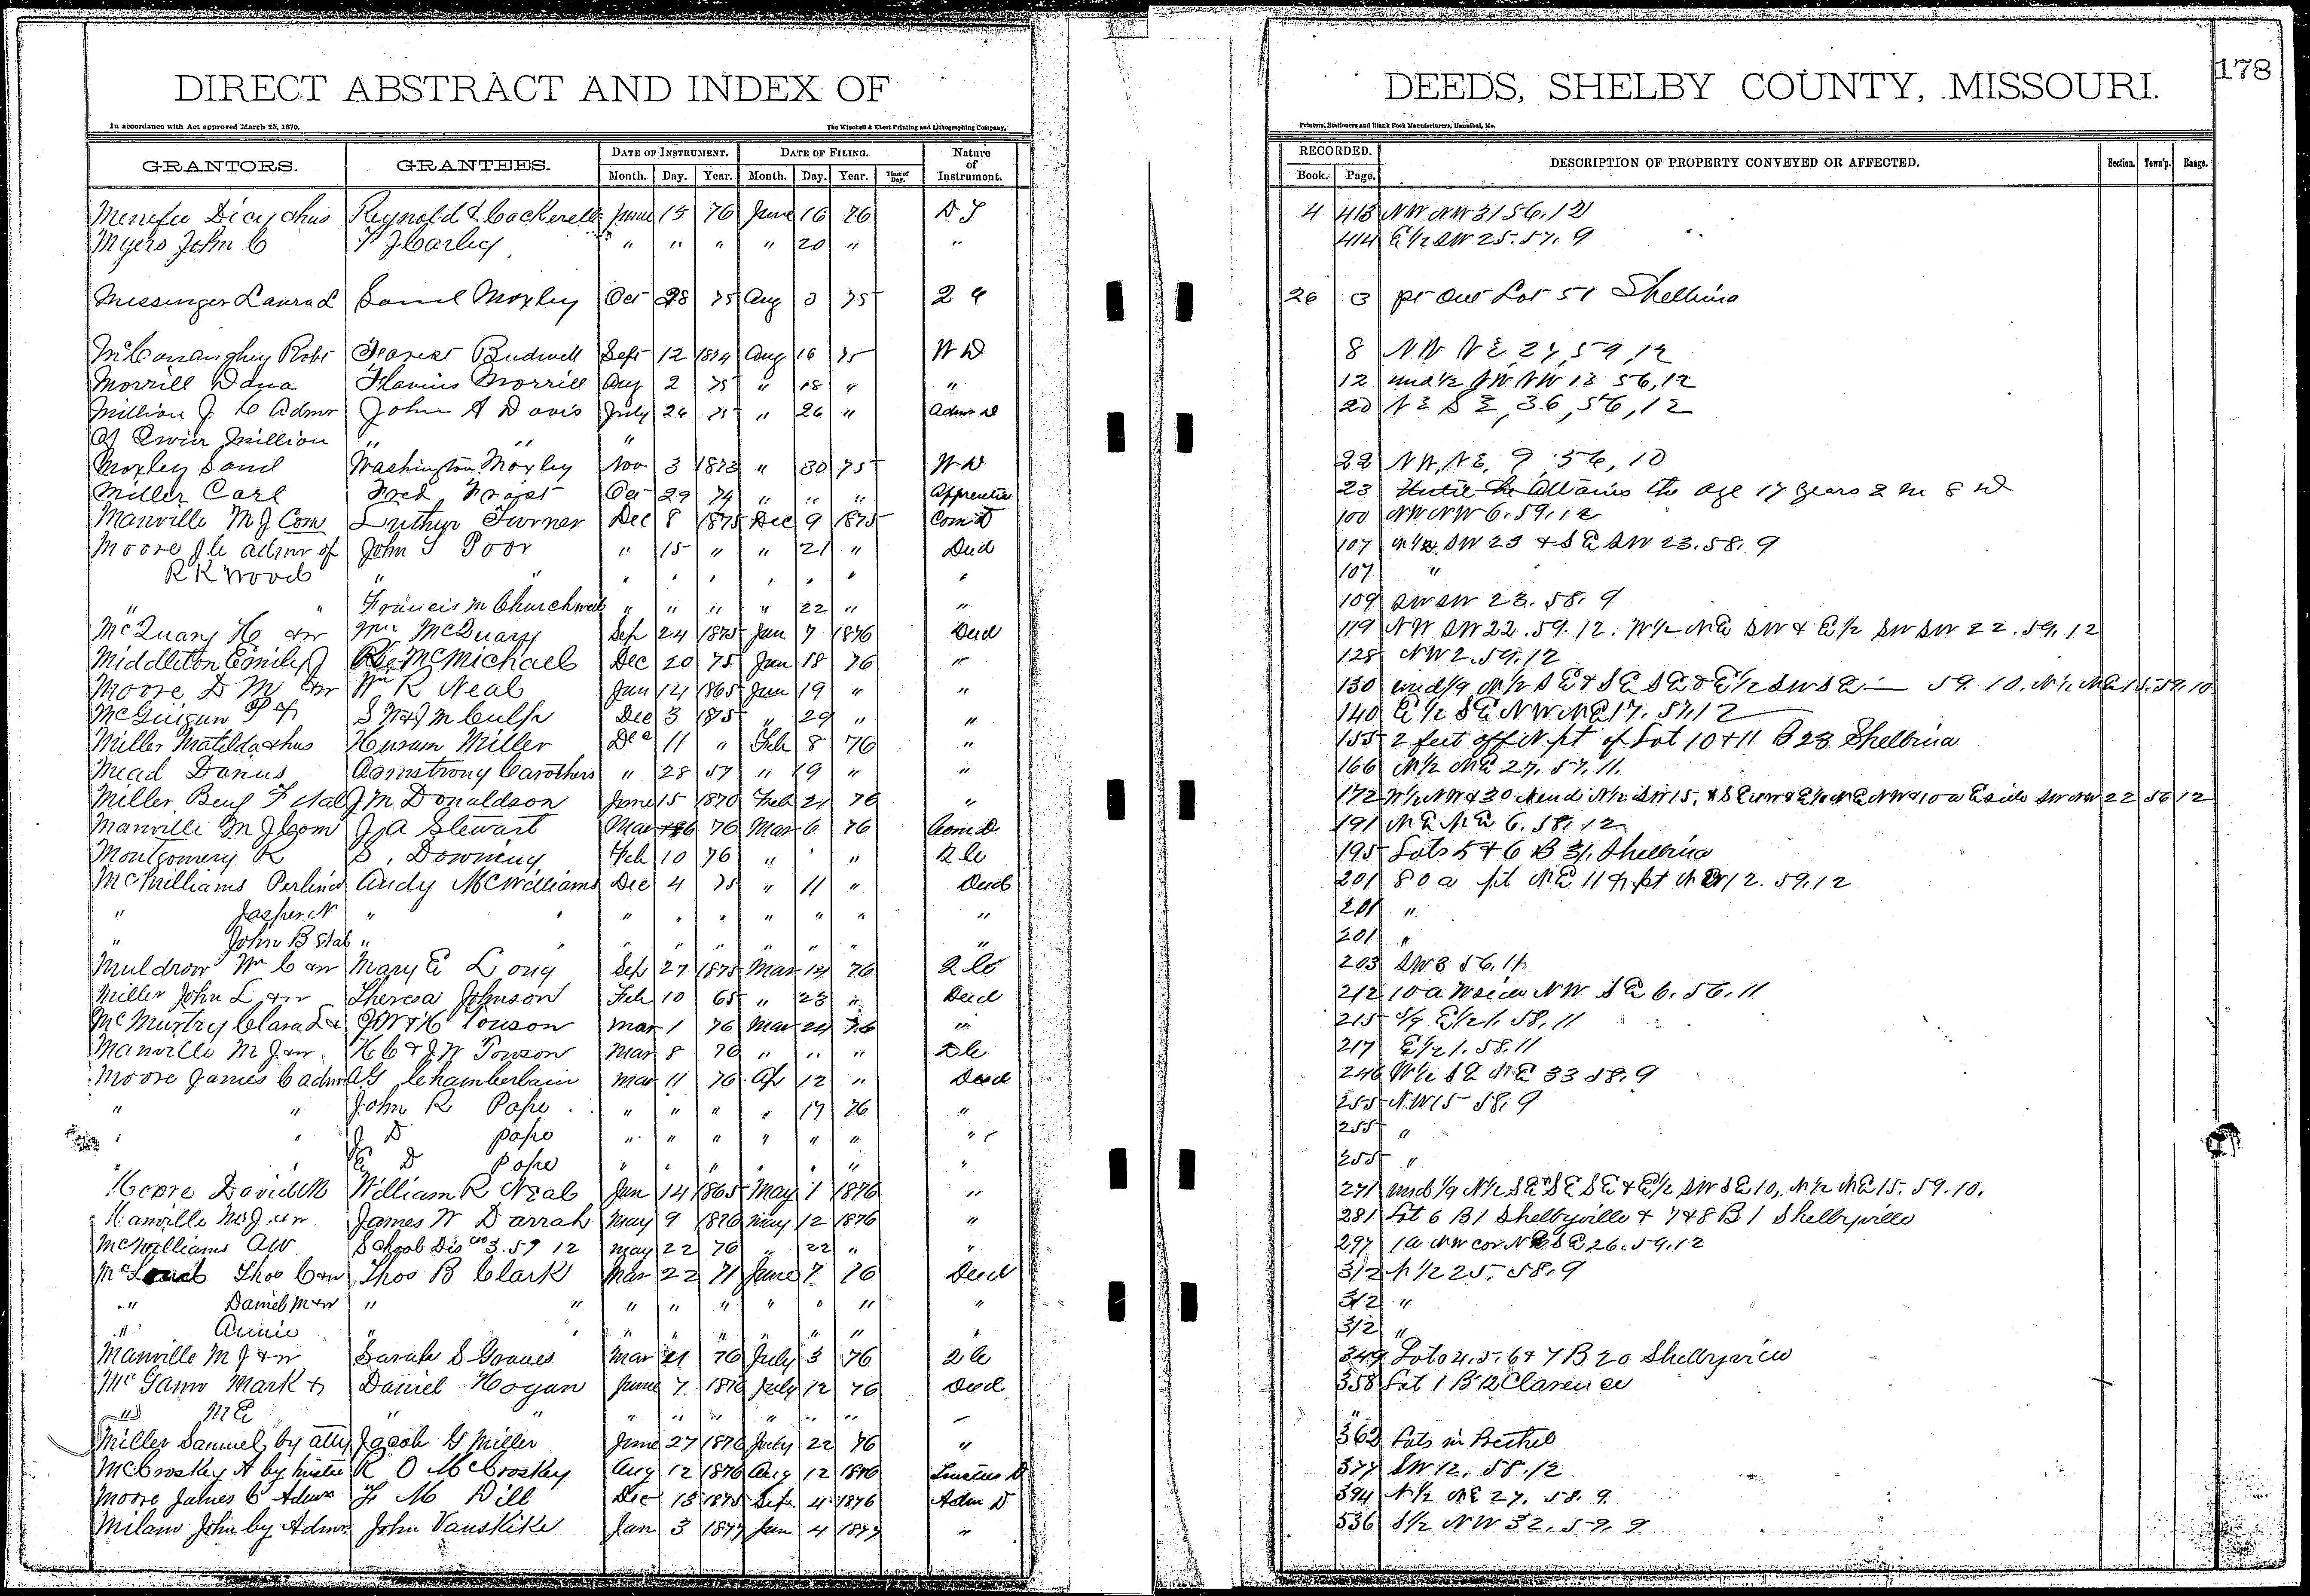 178
DIRECT ABSTRACT AND INDEX OF DEEDS, SHELBY COUNTY, MISSOURI.
In accordance with Act approved March 25, 1870. The Winchell & Ebert Printing and Lithographing Company, Printers, Stationers and Blank Book Manufacturers, Hannibal, Mo.
GRANTORS. GRANTEES. DATE OF INSTRUMENT. DATE OF FILING. Nature of Instrument. RECORDED. DESCRIPTION OF PROPERTY CONVEYED OR AFFECTED. Section. Town'p. Range.
Month. Day. Year. Month. Day. Year. Time of Day. Book. Page.
Menefee Reynold & Cockerell June 15 76 June 16 76 D T 4 413 NW NW 31 56, 12
Myers John C T J Carley " " " " 20 " " 414 E 1/2 SW 25. 57. 9
Messinger Laura L Saml Moxley Oct 28 75 Aug 3 75 26 3 pt Out Lot 51 Shelbina
McConaughey Robt Forest Bidwell Sept 12 1874 Aug 16 75 W D 8 NW NE 27, 59, 12
Morrill Dana Flavius Morrill Aug 2 75 " 18 " " 12 und 1/2 NW 13 56, 12
Million J C Admr John A Davis July 26 75 " 26 " Admr D 20 NE SE, 36, 56, 12
of Million " " "
Moxley Saml Washington Moxley Nov 3 1873 " 30 75 W D 22 NW, NE, 9, 56, 10
Miller Carl Fred Oct 29 74 " " " Apprentice 23 Until he Attains the age 17 years 2 m 8 d
Manville M J Com Luther Turner Dec 8 1875 Dec 9 1875 Com D 100 NW NW 6. 59. 12
Moore J C admr of John S Poor " 15 " " 21 " Deed 107 SW 23 & SE SW 23. 58. 9
R K Wood " " " " " " " " " 107 "
" " Francis M Churchwell " " " " 22 " " 109 SW SW 23. 58. 9
McQuary H &w Wm McQuary Sep 24 1875 Jan 7 1876 Deed 119 NW SW 22. 59. 12. W 1/2 NE SW & E 1/2 SW SW 22. 59. 12
Middleton Emily J McMichael Dec 20 75 Jan 18 76 " 128 NW 2. 59. 12
Moore D M &w Wm R Neal Jan 14 1865 Jan 19 " " 130 und 1/9 N 1/2 SE & SE SE & E 1/2 SW SE — 59. 10. N 1/2 NE 15. 59. 10
McGuigan P S W & J M Culp Dec 3 1875 " 29 " " 140 E 1/2 SE NW NE 17. 57. 12
Miller Matilda & hus Huram Miller Dec 11 " Feb 8 76 " 155 2 feet off N pt of Lot 10 & 11 B 28 Shelbina
Mead Darius Armstrong Carothers " 28 57 " 19 " " 166 N 1/2 NE 27. 57. 11.
Miller Benj F et al J M Donaldson June 15 1870 Feb 21 76 " 172 W 1/2 NW & 30 N end N 1/2 SW 15, & SE NW & E 1/2 NE NW & 10 a E side SW NW 22 56 12
Manville M J Com J A Stewart Mar 6 76 Mar 6 76 Com D 191 NE NE 6. 58. 12
Montgomery R S. Downing Feb 10 76 " " " 2 C 195 Lots 5 & 6 B 31. Shelbina
McWilliams Perlina Andy McWilliams Dec 4 75 " 11 " Deed 201 80 a pt NE 11 & pt NW 12. 59. 12
" Jasper N " " " " " " " " " 201 "
" John B et al " " " " " " " " " 201 "
Muldrow Wm C &w Mary E Long Sep 27 1875 Mar 14 76 2 C 203 SW 3 56. 11
Miller John L &w Theresa Johnson Feb 10 65 " 23 " Deed 212 10 a W side NW SE 6. 56. 11
McMurtry Clara L & J W & H Towson Mar 1 76 Mar 24 76 " 215 E 1/2 1. 58. 11
Manville M J &w H C & J W Towson Mar 8 76 " " " 2 C 217 E 1/2 1. 58. 11
Moore James C admr A G Chamberlain Mar 11 76 Ap 12 " Deed 246 W 1/2 SE NE 33 58. 9
" " John R Pope " " " " 17 76 " 255 NW 15 58. 9
" " J D Pope " " " " " " " 255 "
" " E D Pope " " " " " " " 255 "
Moore David M William R Neal Jan 14 1865 May 1 1876 " 271 und 1/9 N 1/2 SE & SE SE & E 1/2 SW SE 10, N 1/2 NE 15. 59. 10.
Manville M J &w James W Darrah May 9 1876 May 12 1876 " 281 Lot 6 B 1 Shelbyville & 7 & 8 B 1 Shelbyville
McWilliams A W School Dis No 3. 59 12 May 22 76 " 22 " " 297 1 a NW cor SE 26. 59. 12
Thos C &w Thos B Clark Mar 22 71 June 7 76 Deed 312 N 1/2 25. 58. 9
" Daniel M &w " " " " " " " " " 312 "
" Annie " " " " " " " " " 312 "
Manville M J &w Sarah S Graves Mar 21 76 July 3 76 2 C 349 Lots 4. 5. 6 & 7 B 20 Shelbyview
McGann Mark & Daniel Hogan June 7 1876 July 12 76 Deed 358 Lot 1 B 12 Clarence
" M E " " " " " " " " "
Miller Samuel by atty Jacob G Miller June 27 1876 July 22 76 " 362 Lots in Bethel
McCroskey A by trustee R O McCroskey Aug 12 1876 Aug 12 1876 Trustees D 377 SW 12. 58. 12
Moore James C Admr F M Dill Dec 13 1875 Sept 4 1876 Adm D 394 N 1/2 NE 27. 58. 9
Milam John by Admr John Vanskike Jan 3 1877 Jan 4 1877 " 536 S 1/2 NW 32. 59. 9